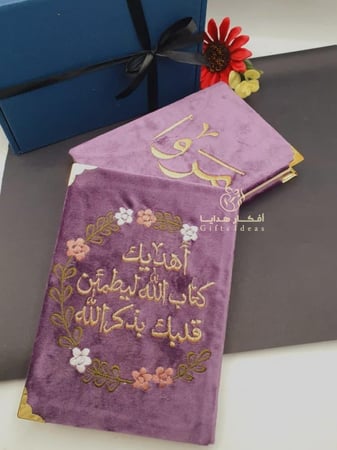 مروة
أفكار هدايا
Gifts Ideas
أهديك
كتاب الله ليطمئن
قلبك بذكر الله